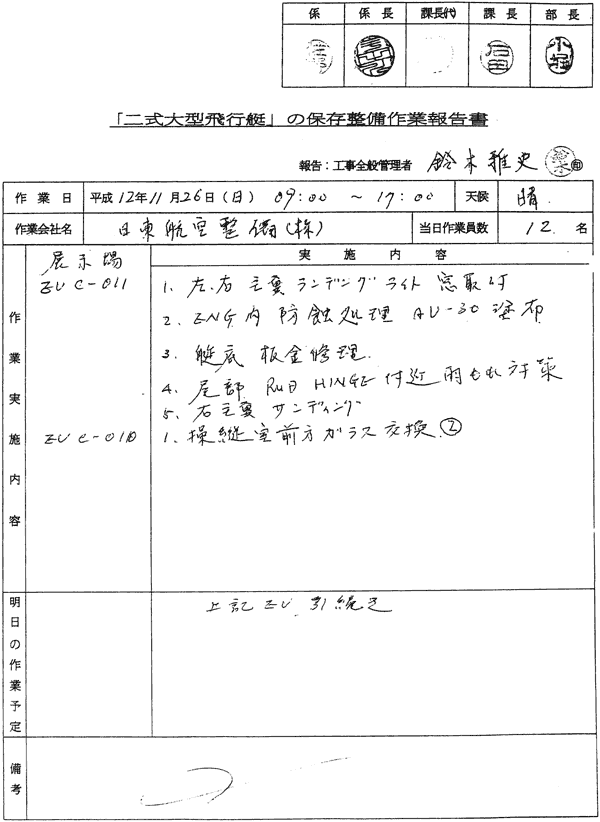 係 係長 課長(代) 課長 部長
石田 小堀
「二式大型飛行艇」の保存整備作業報告書
報告：工事全般管理者 鈴木雅史 鈴木 ㊞
作業日 平成12年11月26日(日) 09:00 ～ 17:00 天候 晴.
作業会社名 日東航空整備(株) 当日作業員数 12. 名
作業実施内容
実施内容
展示場
EU C-011
1. 左、右 主翼ランディングライト 窓取付
2. ENG内 防蝕処理 AV-30 塗布
3. 艇底 板金修理.
4. 尾部 RUD HINGE 付近 雨もれ対策
5. 右主翼 サンディング
EU C-010 1. 操縦室前方ガラス交換. ②
明日の作業予定
上記EU 引続き
備考